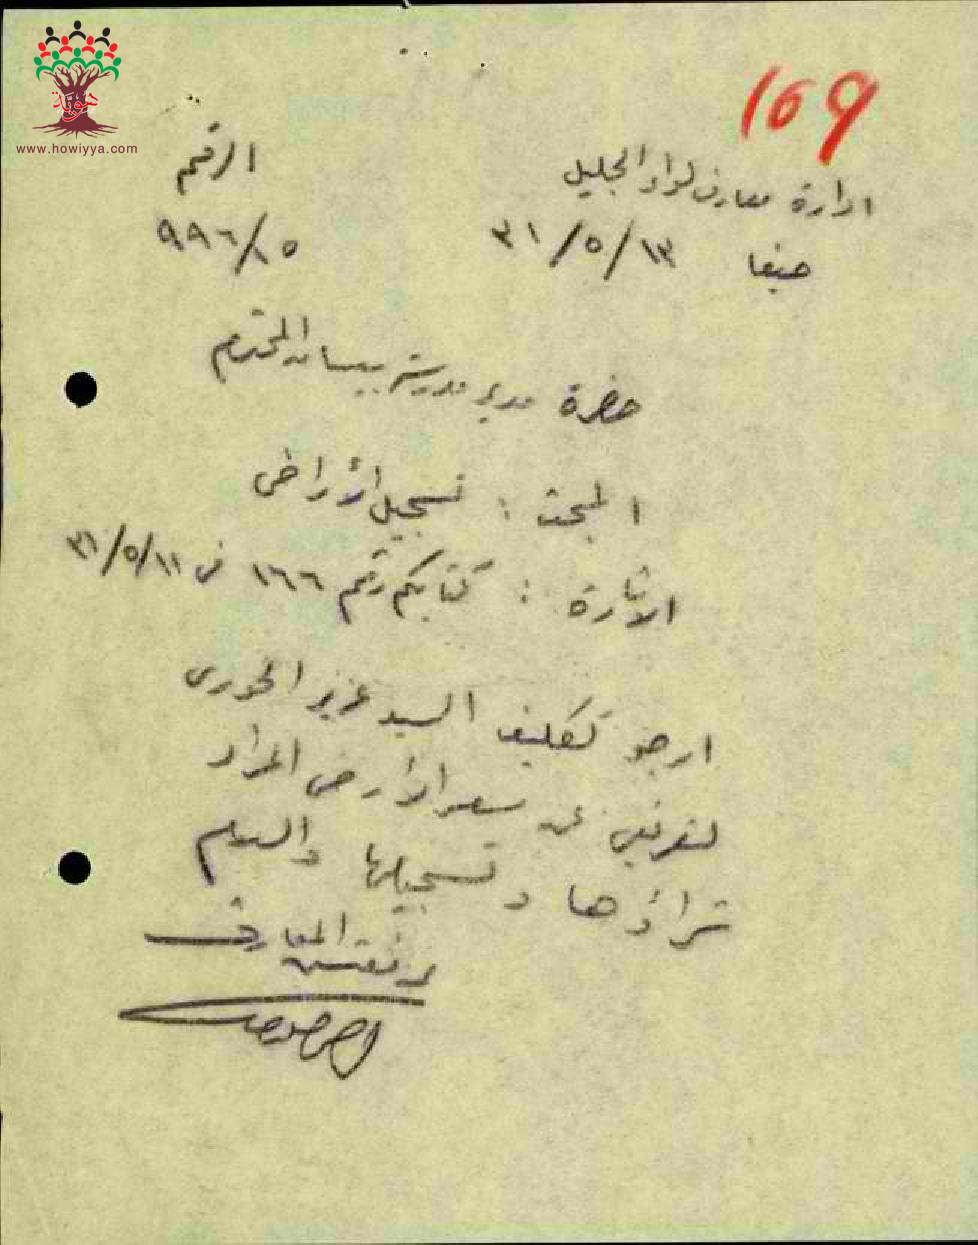 169
هوية
www.howiyya.com
ادارة معارف لواء الجليل
الرقم
حيفا ١٣/٥/٣١
٩٩٦/١٥
حضرة مدير مدرسة بيسان المحترم
المبحث : تسجيل أراضي
الاشارة : كتابكم رقم ١٦٦ في ١١/٥/٣١
ارجو تكليف السيد عزيز الخوري
لتعريفي عن سعر الارض المراد
شراؤها وتسجيلها والسلام
مفتش المعارف